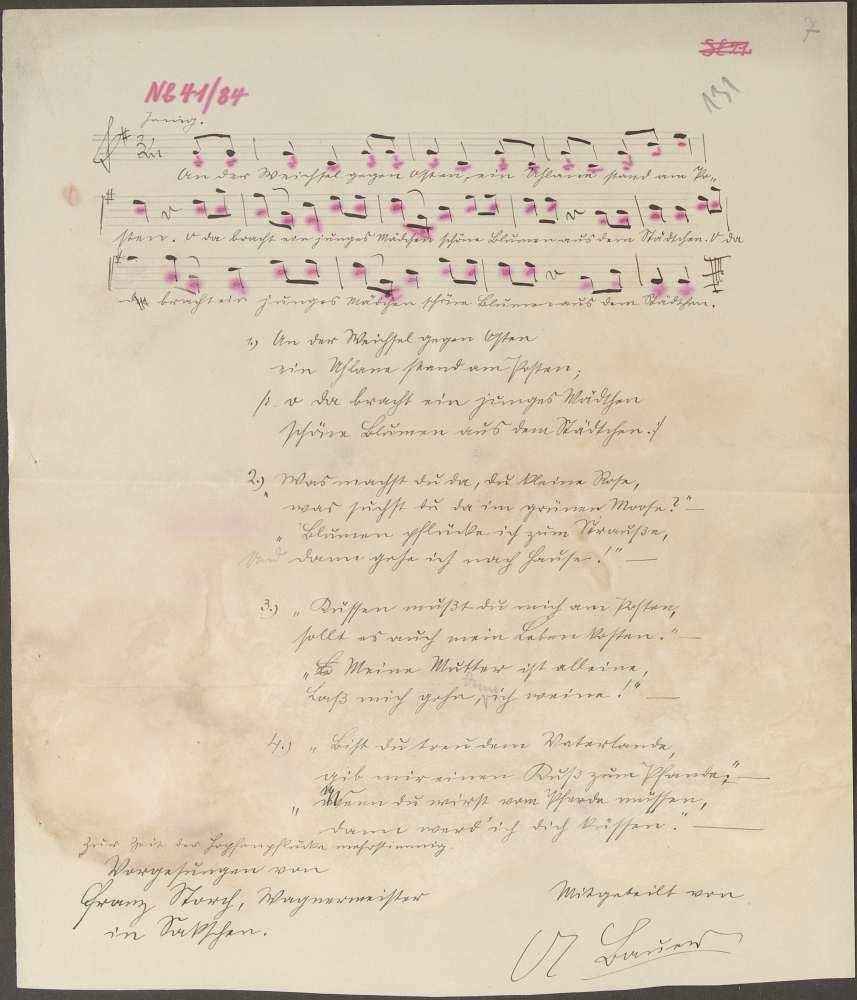 7
131
NG 41/84
Innig.
An der Weichsel gegen Osten, ein Uhlane stand am Po-
sten. O da bracht ein junges Mädchen schöne Blumen aus dem Städtchen. O da
bracht ein junges Mädchen schöne Blumen aus dem Städtchen.
1.) An der Weichsel gegen Osten
ein Uhlane stand am Posten;
/: o da bracht ein junges Mädchen
schöne Blumen aus dem Städtchen :/
2.) Was machst du da, du kleine Rose,
was suchst du da im grünen Moose?" —
" Blumen pflücke ich zum Strauße,
Und dann gehe ich nach Hause!" —
3.) „ Küssen mußt du mich am Posten,
sollt es auch mein Leben kosten." —
„ Meine Mutter ist alleine,
Laß mich gehn, denn ich weine!" —
4.) „ Bist du treu dem Vaterlande,
gib mir einen Kuß zum Pfande," —
„ Wenn du wirst vom Pferde müssen,
dann werd' ich dich küssen." —
Zur Zeit der Hopfenpflücke mehrstimmig.
Vorgesungen von
Franz Storch, Wagnermeister
in Saktschen.
Mitgeteilt von
Bauer